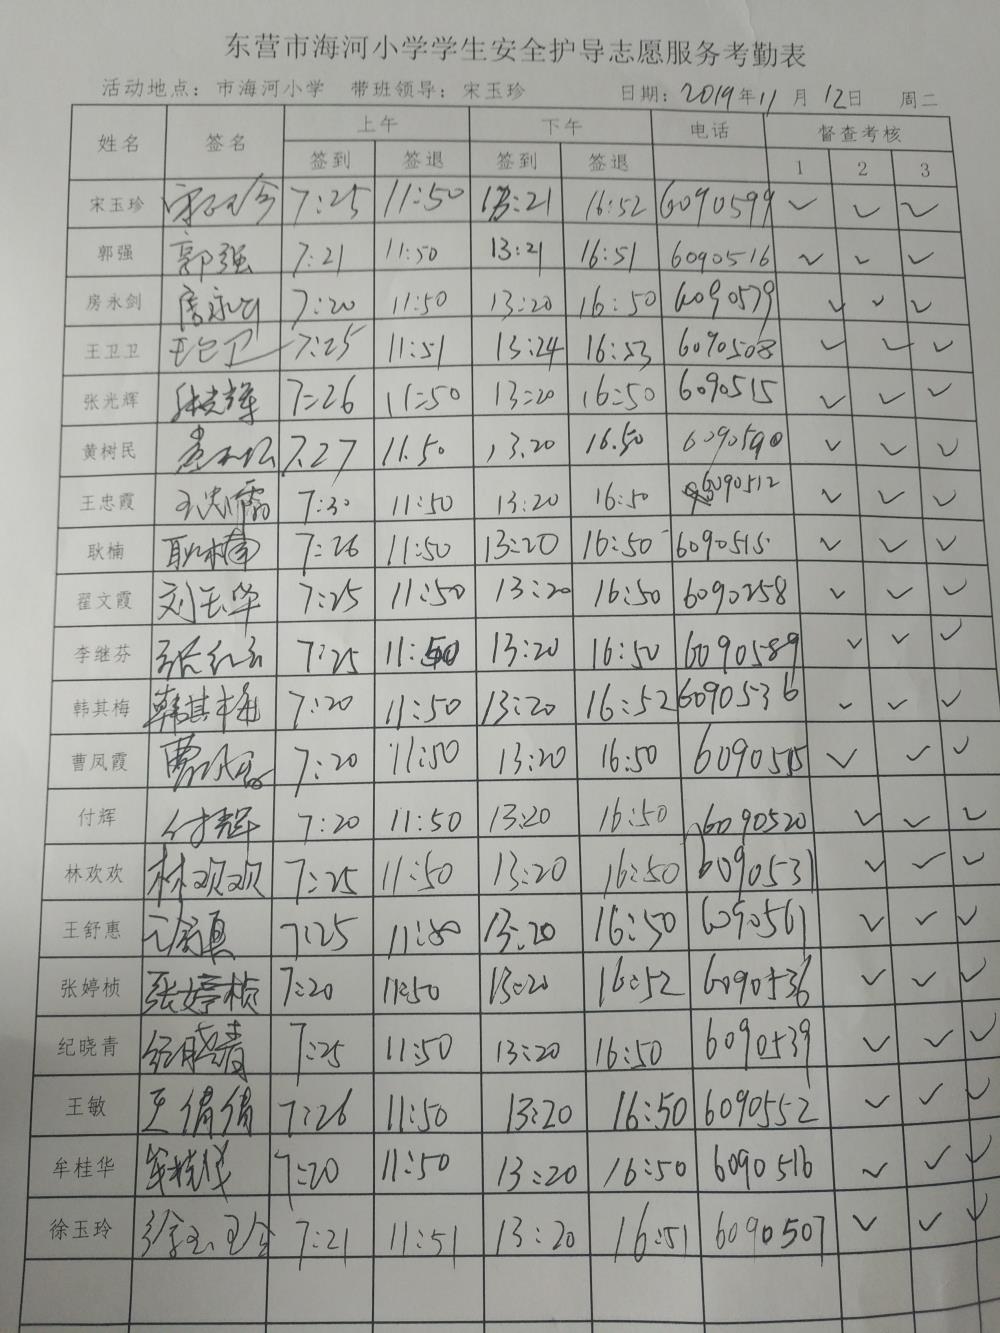 东营市海河小学学生安全护导志愿服务考勤表
活动地点：市海河小学 带班领导：宋玉珍 日期：2019年11月12日 周二
姓名 签名 上午 下午 电话 督查考核
签到 签退 签到 签退 1 2 3
宋玉珍 宋玉珍 7:25 11:50 13:21 16:52 6090599 ✓ ✓ ✓
郭强 郭强 7:21 11:50 13:21 16:51 6090516 ✓ ✓ ✓
房永剑 房永剑 7:20 11:50 13:20 16:50 6090579 ✓ ✓ ✓
王卫卫 王卫卫 7:25 11:51 13:24 16:53 6090508 ✓ ✓ ✓
张光辉 张光辉 7:26 11:50 13:20 16:50 6090515 ✓ ✓ ✓
黄树民 7.27 11.50 13.20 16.50 6090590 ✓ ✓ ✓
王忠霞 王忠霞 7:30 11:50 13:20 16:50 6090512 ✓ ✓ ✓
耿楠 耿楠 7:26 11:50 13:20 16:50 6090515 ✓ ✓ ✓
翟文霞 刘玉华 7:25 11:50 13:20 16:50 6090258 ✓ ✓ ✓
李继芬 张红云 7:25 11:50 13:20 16:50 6090589 ✓ ✓ ✓
韩其梅 韩其梅 7:20 11:50 13:20 16:52 6090536 ✓ ✓ ✓
曹凤霞 曹凤霞 7:20 11:50 13:20 16:50 6090515 ✓ ✓ ✓
付辉 付辉 7:20 11:50 13:20 16:50 6090520 ✓ ✓ ✓
林欢欢 林欢欢 7:25 11:50 13:20 16:50 6090531 ✓ ✓ ✓
王舒惠 7:25 11:50 13:20 16:50 6090561 ✓ ✓ ✓
张婷桢 张婷桢 7:20 11:50 13:20 16:52 6090536 ✓ ✓ ✓
纪晓青 纪晓青 7:25 11:50 13:20 16:50 6090539 ✓ ✓ ✓
王敏 王倩倩 7:26 11:50 13:20 16:50 6090552 ✓ ✓ ✓
牟桂华 牟桂华 7:20 11:50 13:20 16:50 6090516 ✓ ✓ ✓
徐玉玲 徐玉玲 7:21 11:51 13:20 16:51 6090507 ✓ ✓ ✓